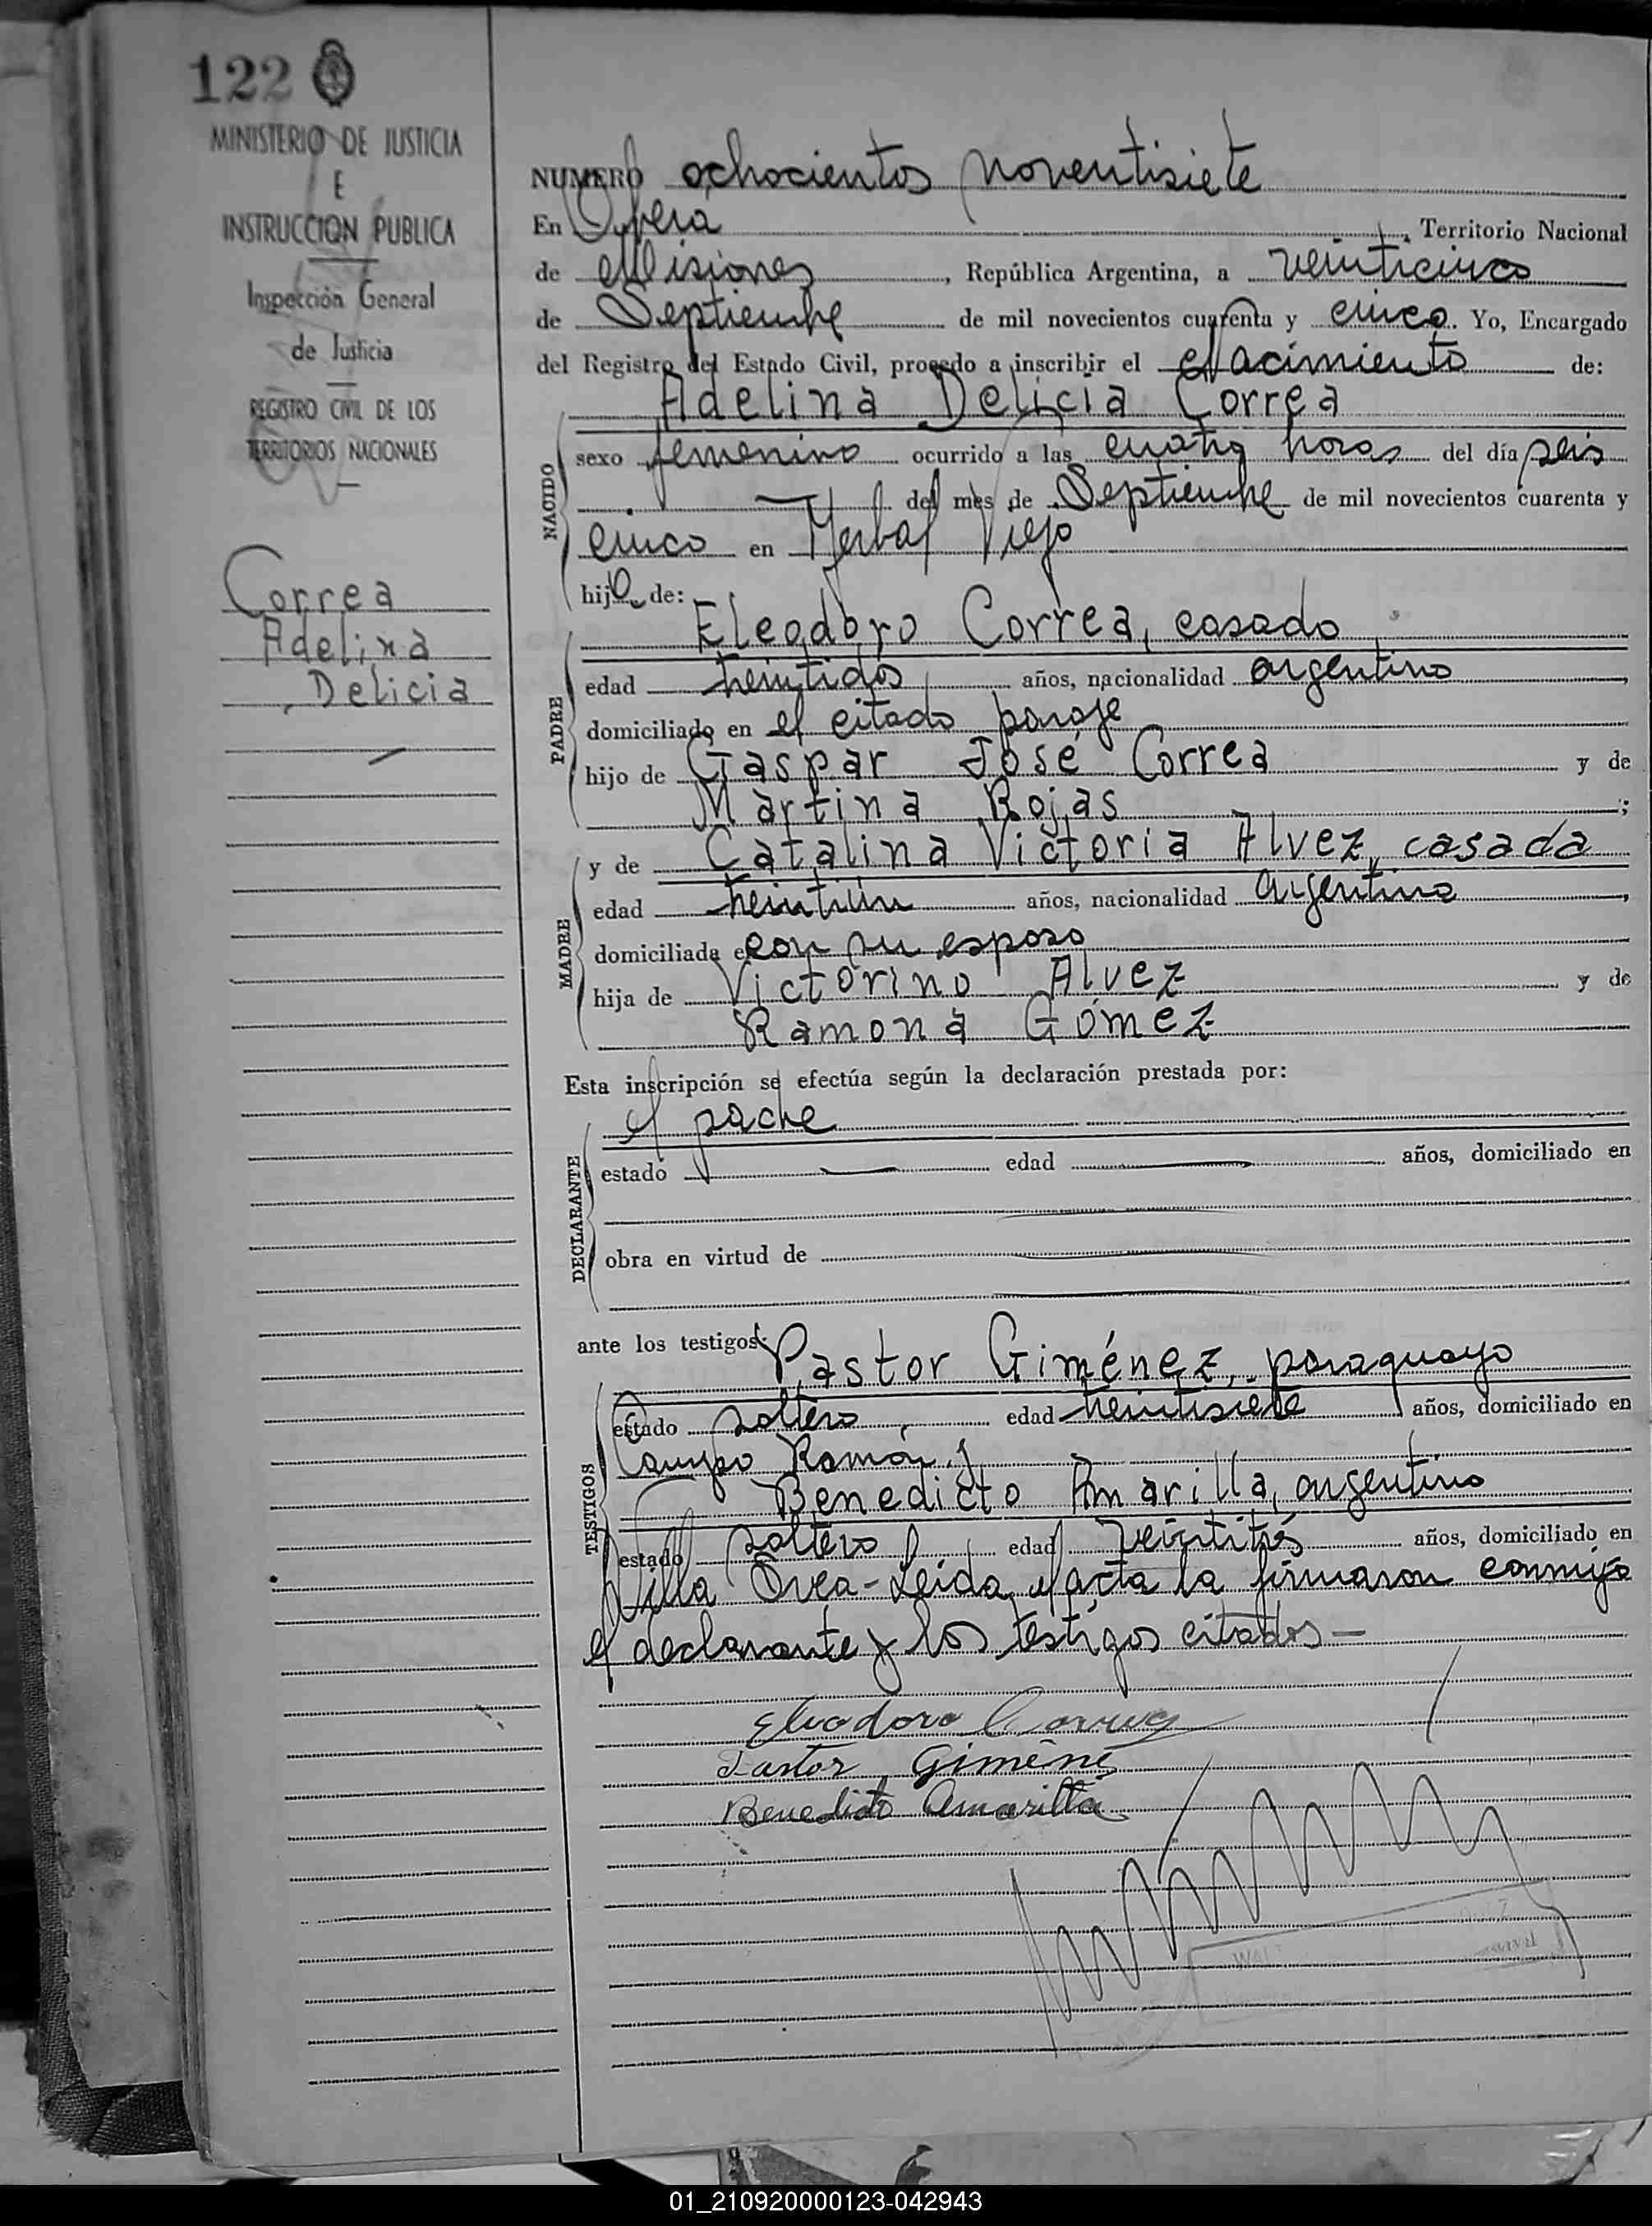 122
MINISTERIO DE JUSTICIA
E
INSTRUCCION PUBLICA
Inspección General
de Justicia
REGISTRO CIVIL DE LOS
TERRITORIOS NACIONALES
Correa
Adelina
Delicia
NUMERO ochocientos noventisiete
En Oberá, Territorio Nacional
de Misiones, República Argentina, a veinticinco
de Septiembre de mil novecientos cuarenta y cinco. Yo, Encargado
del Registro del Estado Civil, procedo a inscribir el Nacimiento de:
Adelina Delicia Correa
NACIDO
sexo femenino ocurrido a las cuatro horas del día seis
del mes de Septiembre de mil novecientos cuarenta y
cinco en Yerbal Viejo
hijo de:
Eleodoro Correa, casado
PADRE
edad treintidós años, nacionalidad argentino,
domiciliado en el citado paraje
hijo de Gaspar José Correa y de
Martina Rojas;
y de Catalina Victoria Alvez, casada
MADRE
edad treintiún años, nacionalidad argentina,
domiciliada con su esposo
hija de Victorino Alvez y de
Ramona Gómez
Esta inscripción se efectúa según la declaración prestada por:
el padre
DECLARANTE
estado edad años, domiciliado en
obra en virtud de
ante los testigos: Pastor Giménez, paraguayo
TESTIGOS
estado soltero, edad treintisiete años, domiciliado en
Campo Ramón y
Benedicto Amarilla, argentino
estado soltero edad veintitrés años, domiciliado en
Villa Svea-Leida el acta la firmaron conmigo
el declarante y los testigos citados—
Eleodoro Correa
Pastor Giméne
Benedicto Amarilla
01_210920000123-042943